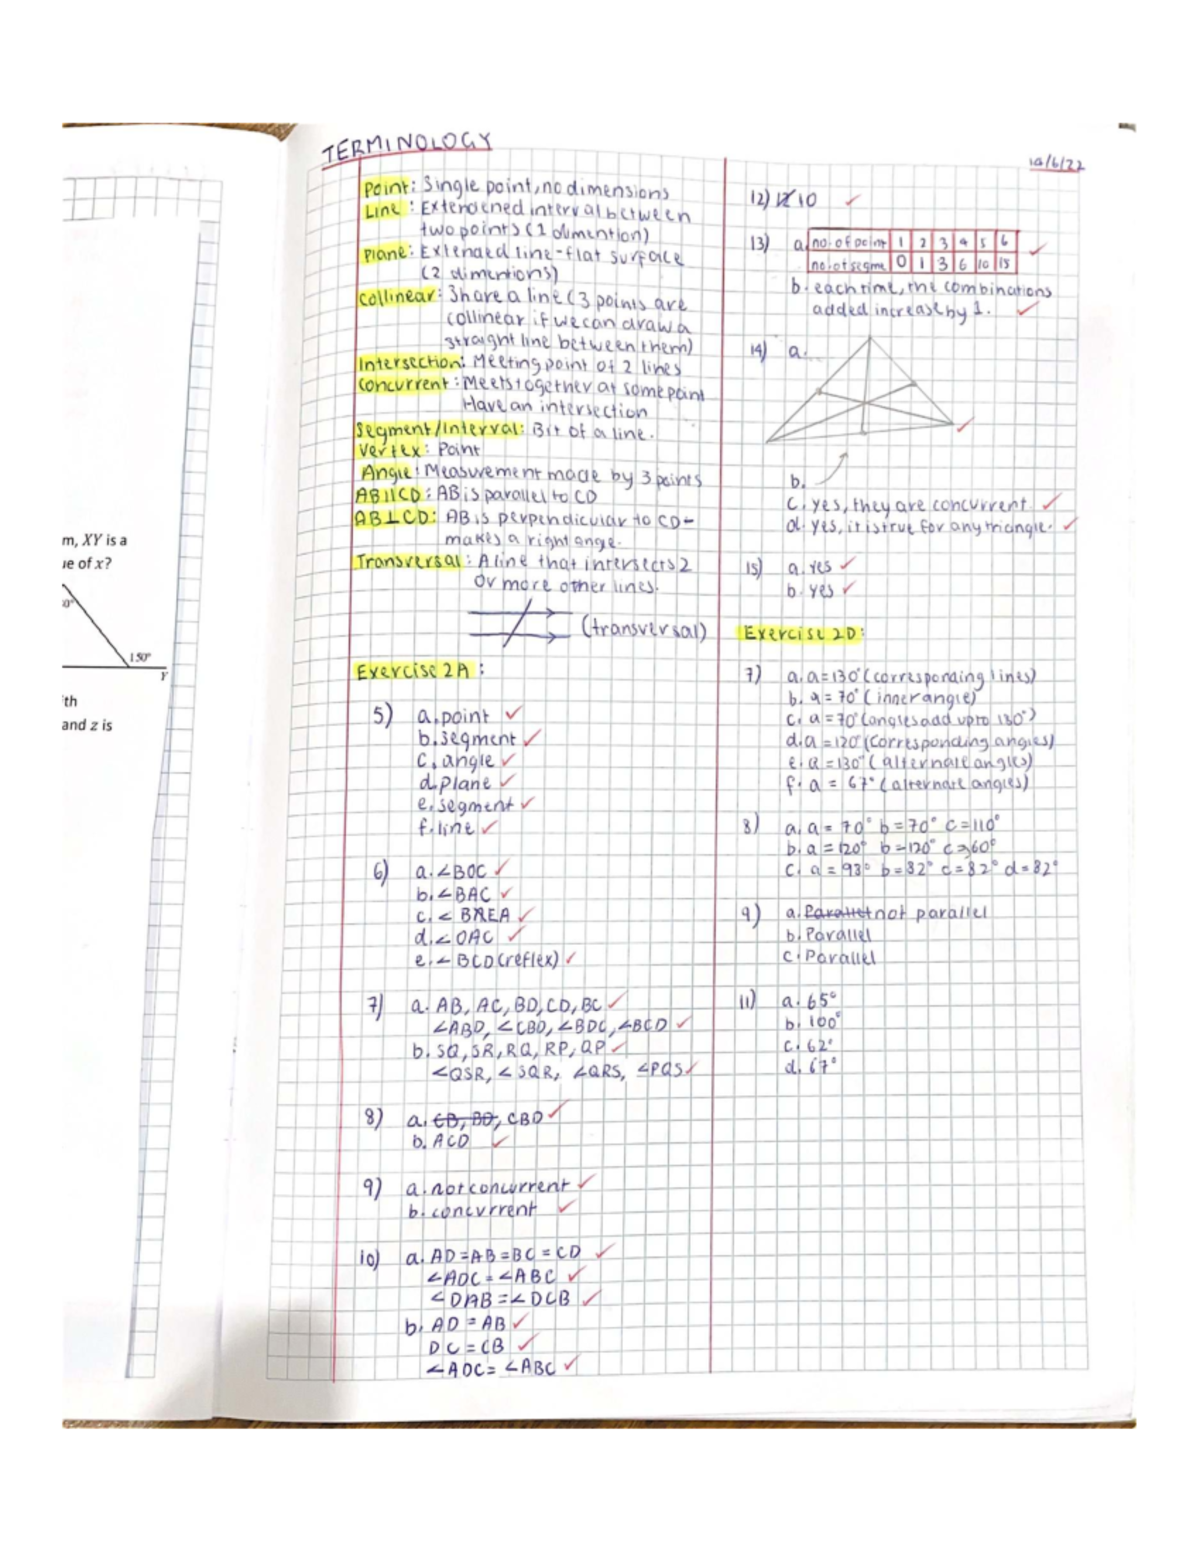 m, XY is a
ue of x?
150°
Y
ith
and z is
TERMINOLOGY
Point: Single point, no dimensions
Line: Extendened interval between
two points (1 dimention)
Plane: Extended line - flat surface
(2 dimentions)
Collinear: Share a line (3 points are
collinear if we can draw a
straight line between them)
Intersection: Meeting point of 2 lines
Concurrent: Meets together at some point
Have an intersection
Segment/Interval: Bit of a line.
Vertex: Point
Angle: Measurement made by 3 points
AB||CD: AB is parallel to CD
AB⊥CD: AB is perpendicular to CD -
makes a right ange.
Transversal: A line that intersects 2
or more other lines.
(transversal)
Exercise 2A:
5) a. point ✓
b. segment ✓
c. angle ✓
d. plane ✓
e. segment ✓
f. line ✓
6) a. ∠BOC ✓
b. ∠BAC ✓
c. ∠ BAEA ✓
d. ∠OAC ✓
e. ∠ BCD (reflex) ✓
7) a. AB, AC, BD, CD, BC ✓
∠ABD, ∠CBD, ∠BDC, ∠BCD ✓
b. SQ, SR, RQ, RP, QP ✓
∠QSR, ∠SQR, ∠QRS, ∠PQS ✓
8) a. CB, BD, CBD ✓
b. ACD ✓
9) a. not concurrent ✓
b. concurrent ✓
10) a. AD = AB = BC = CD ✓
∠ADC = ∠ABC ✓
∠DAB = ∠DCB ✓
b. AD = AB ✓
DC = CB ✓
∠ADC = ∠ABC ✓
14/6/22
12) 10 ✓
13) a. no. of point 1 2 3 4 5 6 ✓
no. of segme 0 1 3 6 10 15
b. each time, the combinations
added increase by 1. ✓
14) a.
✓
b.
c. yes, they are concurrent. ✓
d. yes, it is true for any triangle. ✓
15) a. yes ✓
b. yes ✓
Exercise 2D:
7) a. a = 130° (corresponding lines)
b. a = 70° (inner angle)
c. a = 70° (angles add up to 180°)
d. a = 120° (corresponding angles)
e. a = 130° (alternate angles)
f. a = 67° (alternate angles)
8) a. a = 70° b = 70° c = 110°
b. a = 120° b = 120° c = 60°
c. a = 98° b = 82° c = 82° d = 82°
9) a. Parallel not parallel
b. Parallel
c. Parallel
11) a. 65°
b. 100°
c. 62°
d. 67°